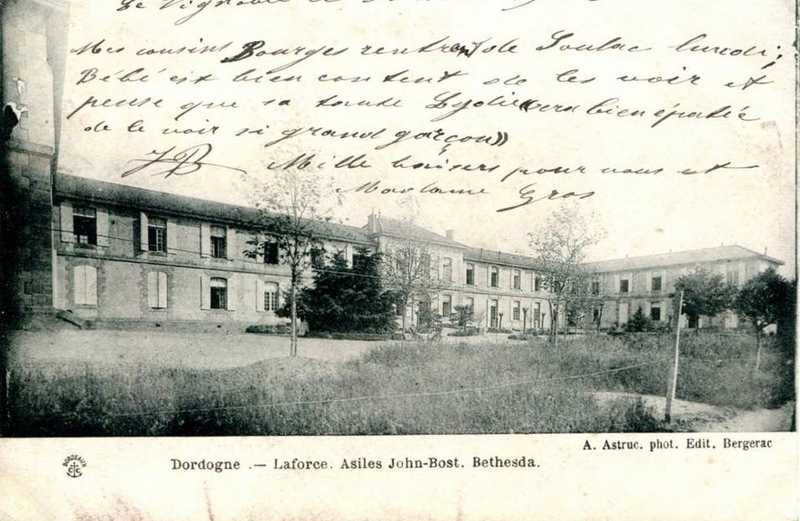 Le Vignoble
Mes cousins Bourges rentrent de Soulac lundi;
Bébé est bien content de les voir et
pense que sa tante Lydie sera bien épatée
de le voir si grand garçon »
JB Mille baisers pour vous et
Madame Gros
A. Astruc. phot. Edit. Bergerac
BORDEAUX
Dordogne .— Laforce. Asiles John-Bost. Bethesda.